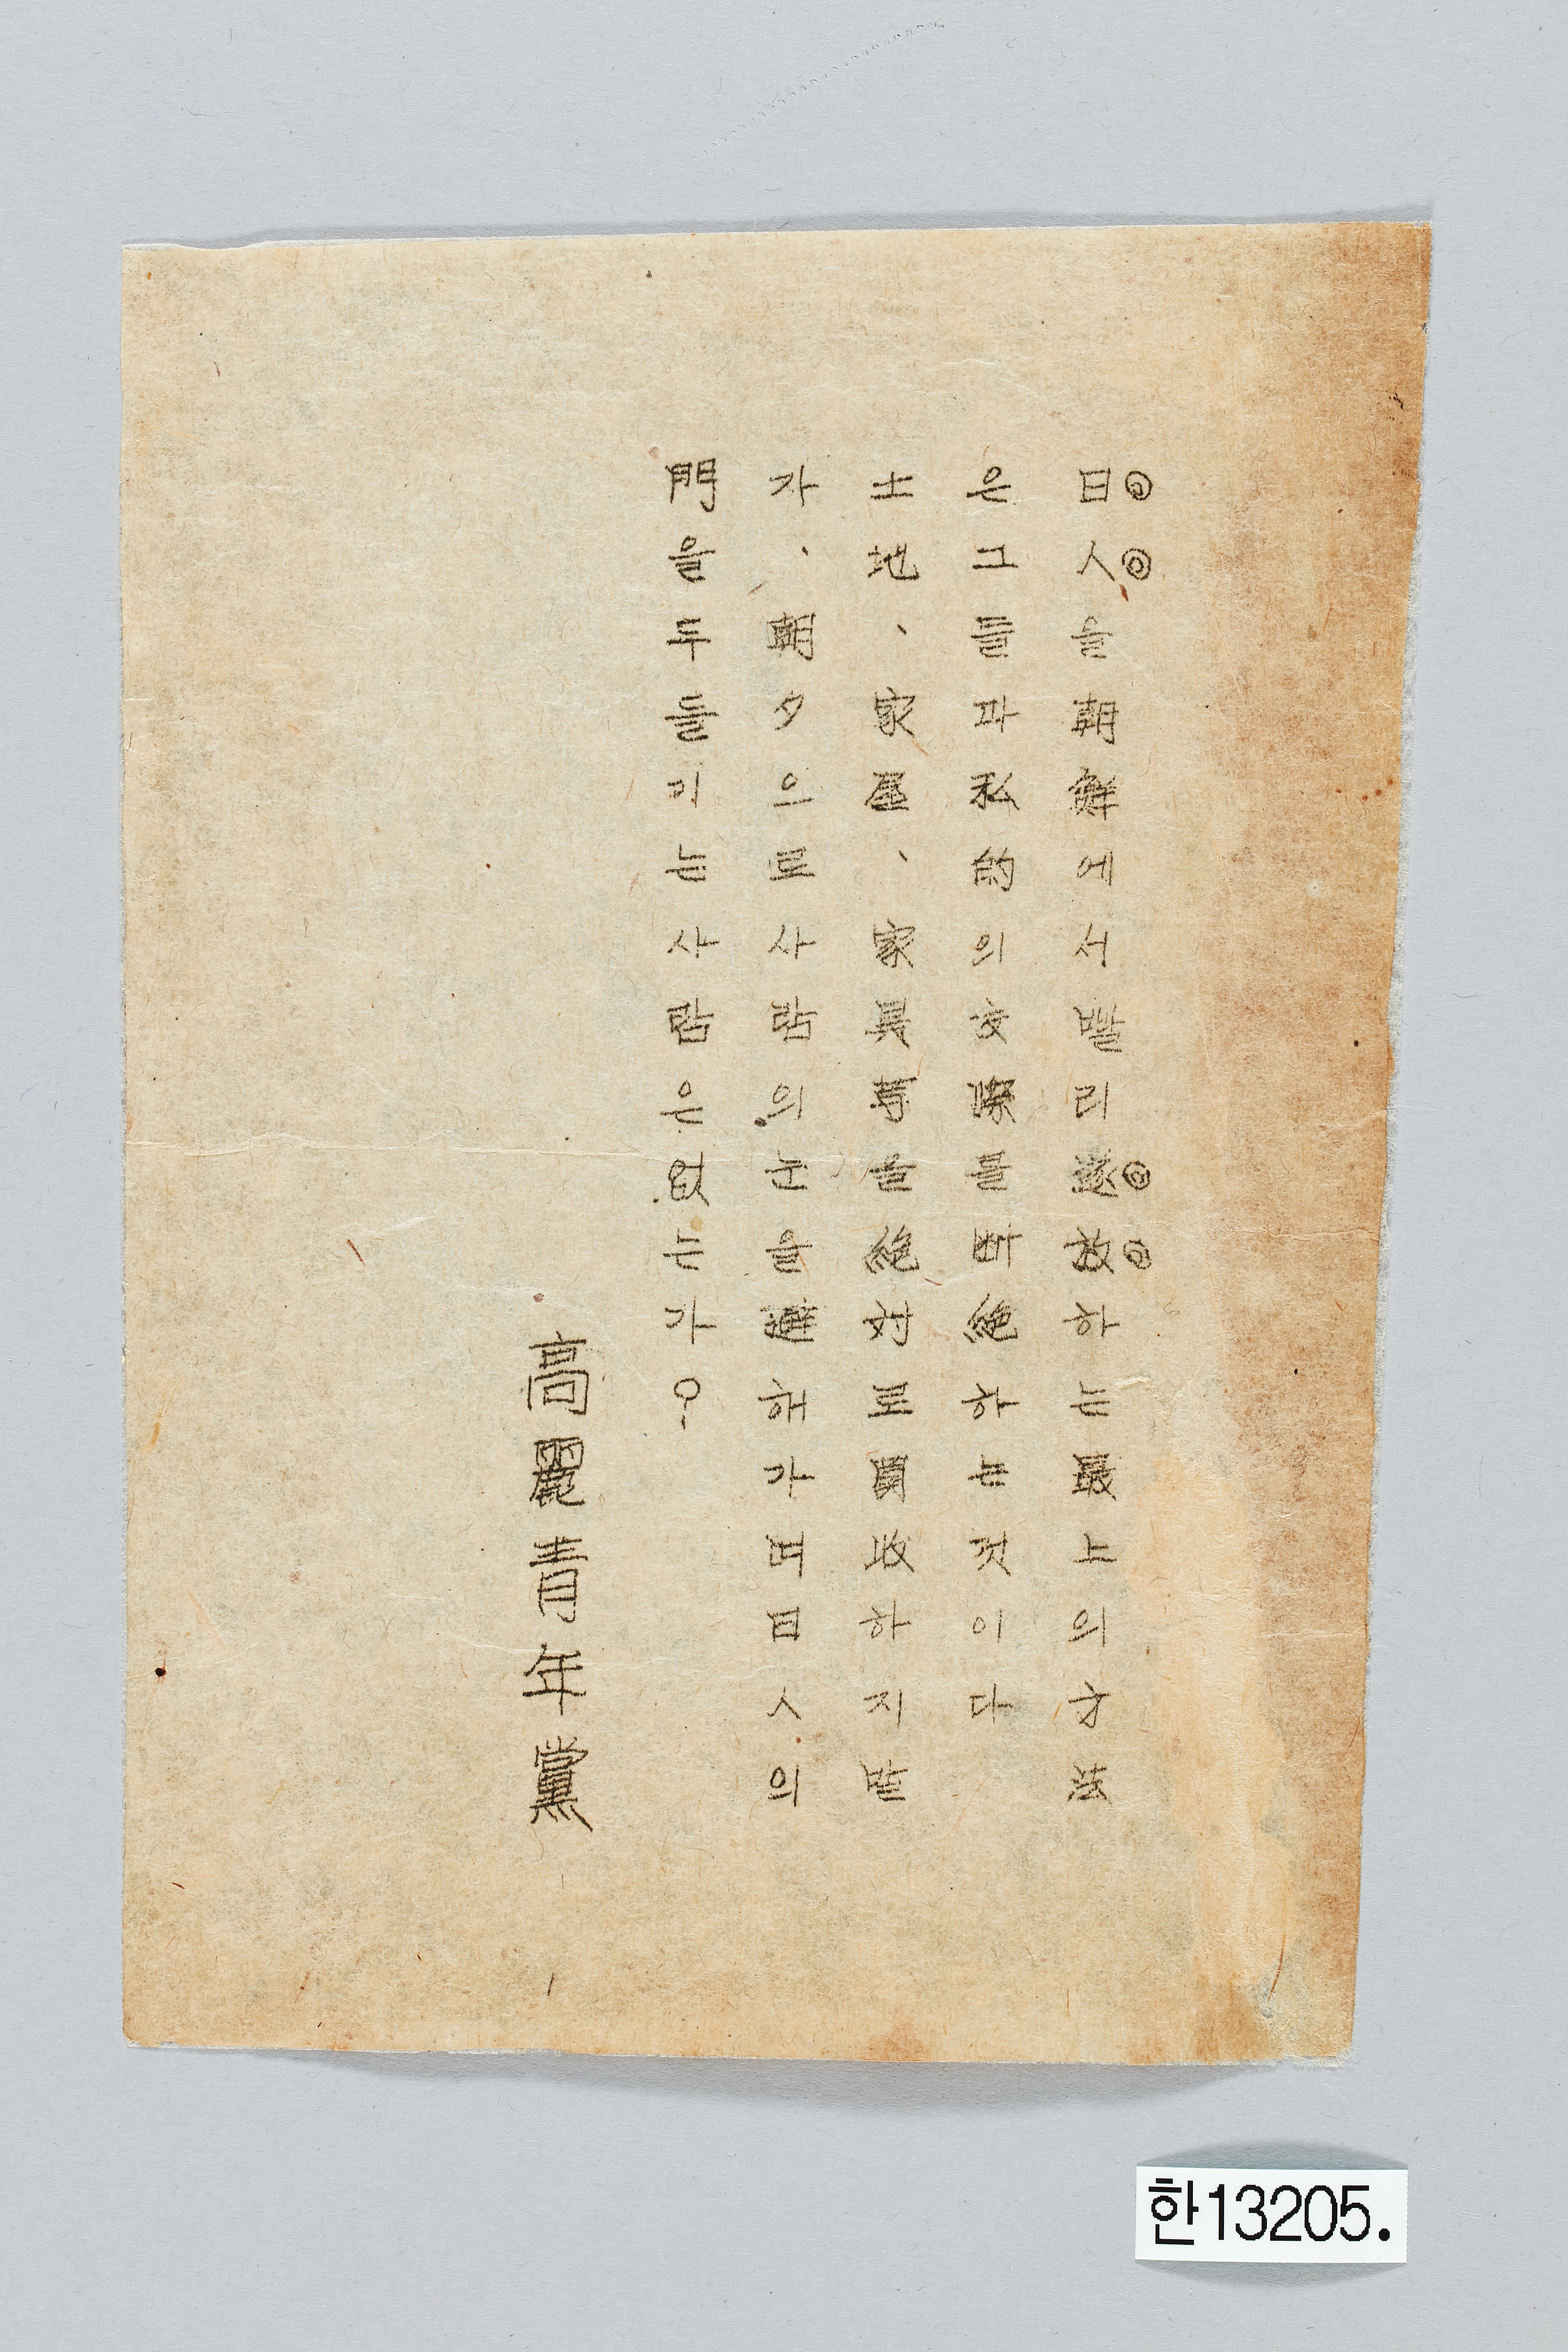 日人을朝鮮에서빨리遂放하는最上의方法
은그들과私的의交際를断絶하는것이다
土地、家屋、家具等을絶対로買收하지말
자、朝夕으로사람의눈을避해가며日人의
門을두들기는사람은없는가?
高麗青年黨
한13205.